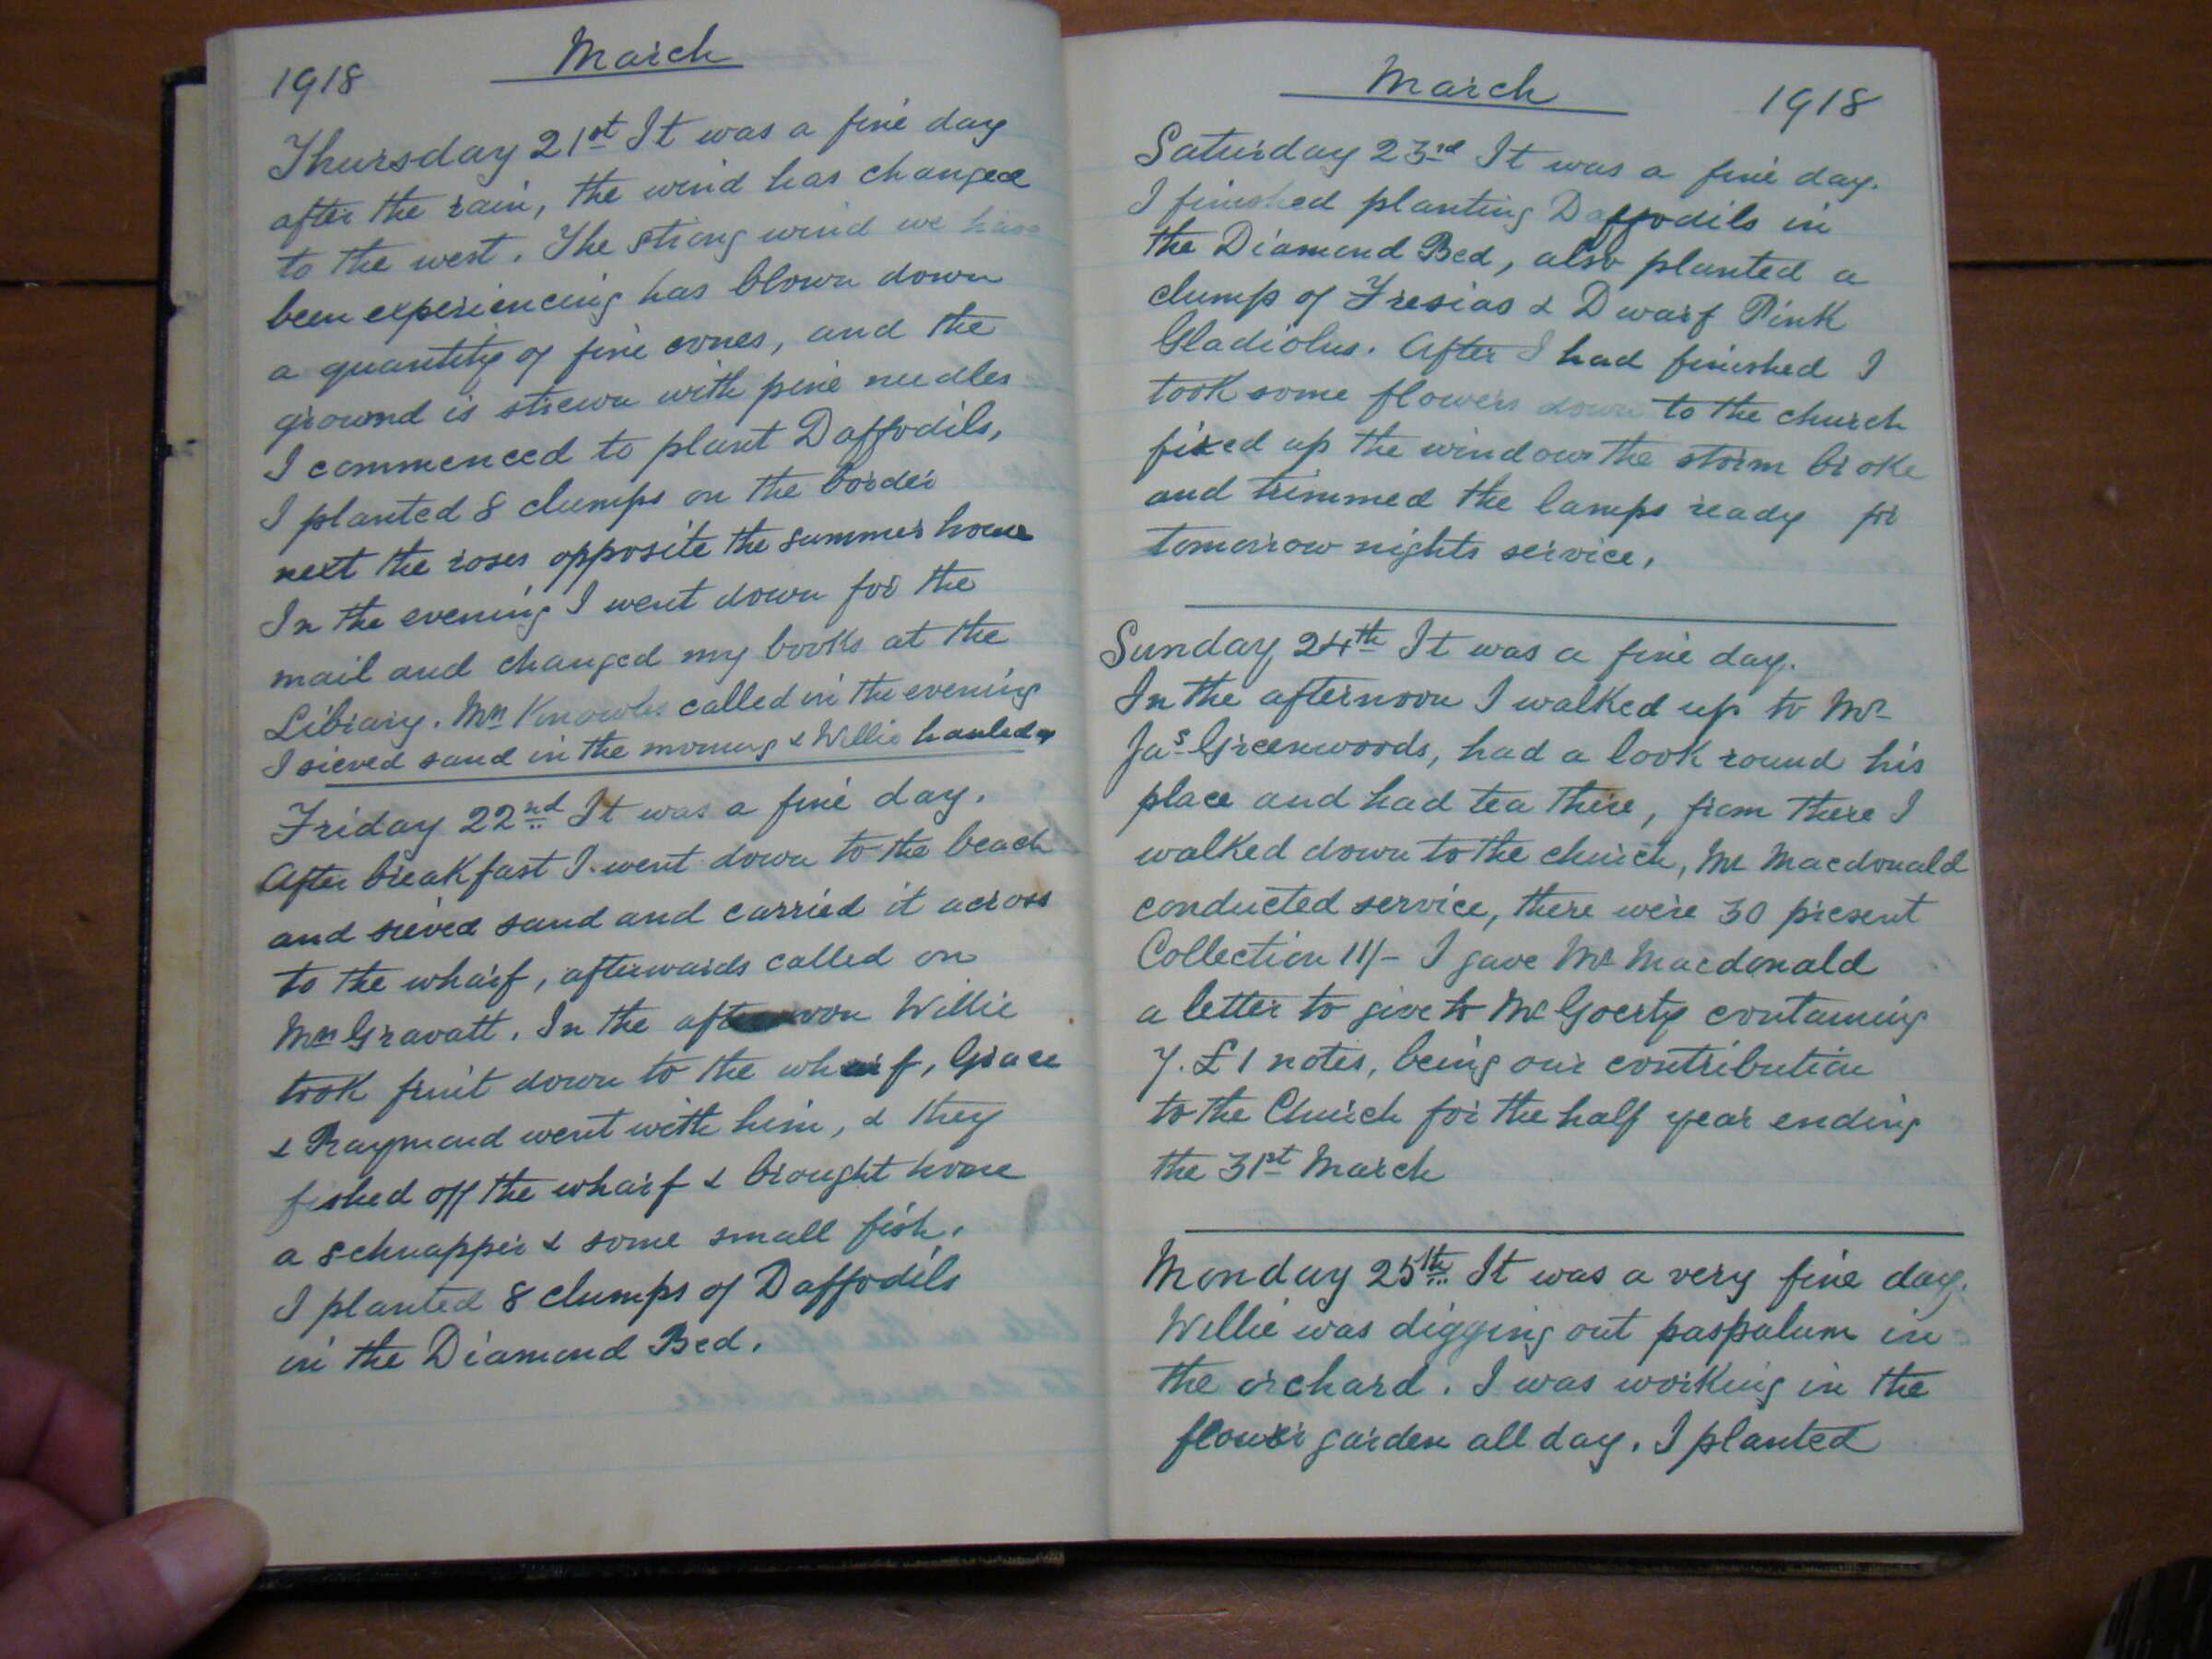 1918 March
Thursday 21st It was a fine day
after the rain, the wind has changed
to the west. The strong wind we have
been experiencing has blown down
a quantity of pine cones, and the
ground is strewn with pine needles
I commenced to plant Daffodils,
I planted 8 clumps on the border
next the roses opposite the summer house
In the evening I went down for the
mail and changed my books at the
Library. Mrs Knowles called in the evening
I sieved sand in the morning & Willie hauled up
Friday 22nd It was a fine day.
After breakfast I went down to the beach
and sieved sand and carried it across
to the wharf, afterwards called on
Mrs Gravatt. In the afternoon Willie
took fruit down to the wharf, Grace
& Raymond went with him, & they
fished off the wharf & brought home
a schnapper & some small fish.
I planted 8 clumps of Daffodils
in the Diamond Bed.
March 1918
Saturday 23rd It was a fine day.
I finished planting Daffodils in
the Diamond Bed, also planted a
clump of Fresias & Dwarf Pink
Gladiolus. After I had finished I
took some flowers down to the church
fixed up the window the storm broke
and trimmed the lamps ready for
tomorrow nights service.
Sunday 24th It was a fine day.
In the afternoon I walked up to Mr
Jas Greenwoods, had a look round his
place and had tea there, from there I
walked down to the church, Mr Macdonald
conducted service, there were 30 present
Collection 11/- I gave Mr Macdonald
a letter to give to Mr Goerty containing
7. £1 notes, being our contribution
to the Church for the half year ending
the 31st March
Monday 25th It was a very fine day.
Willie was digging out paspalum in
the orchard. I was working in the
flower garden all day. I planted